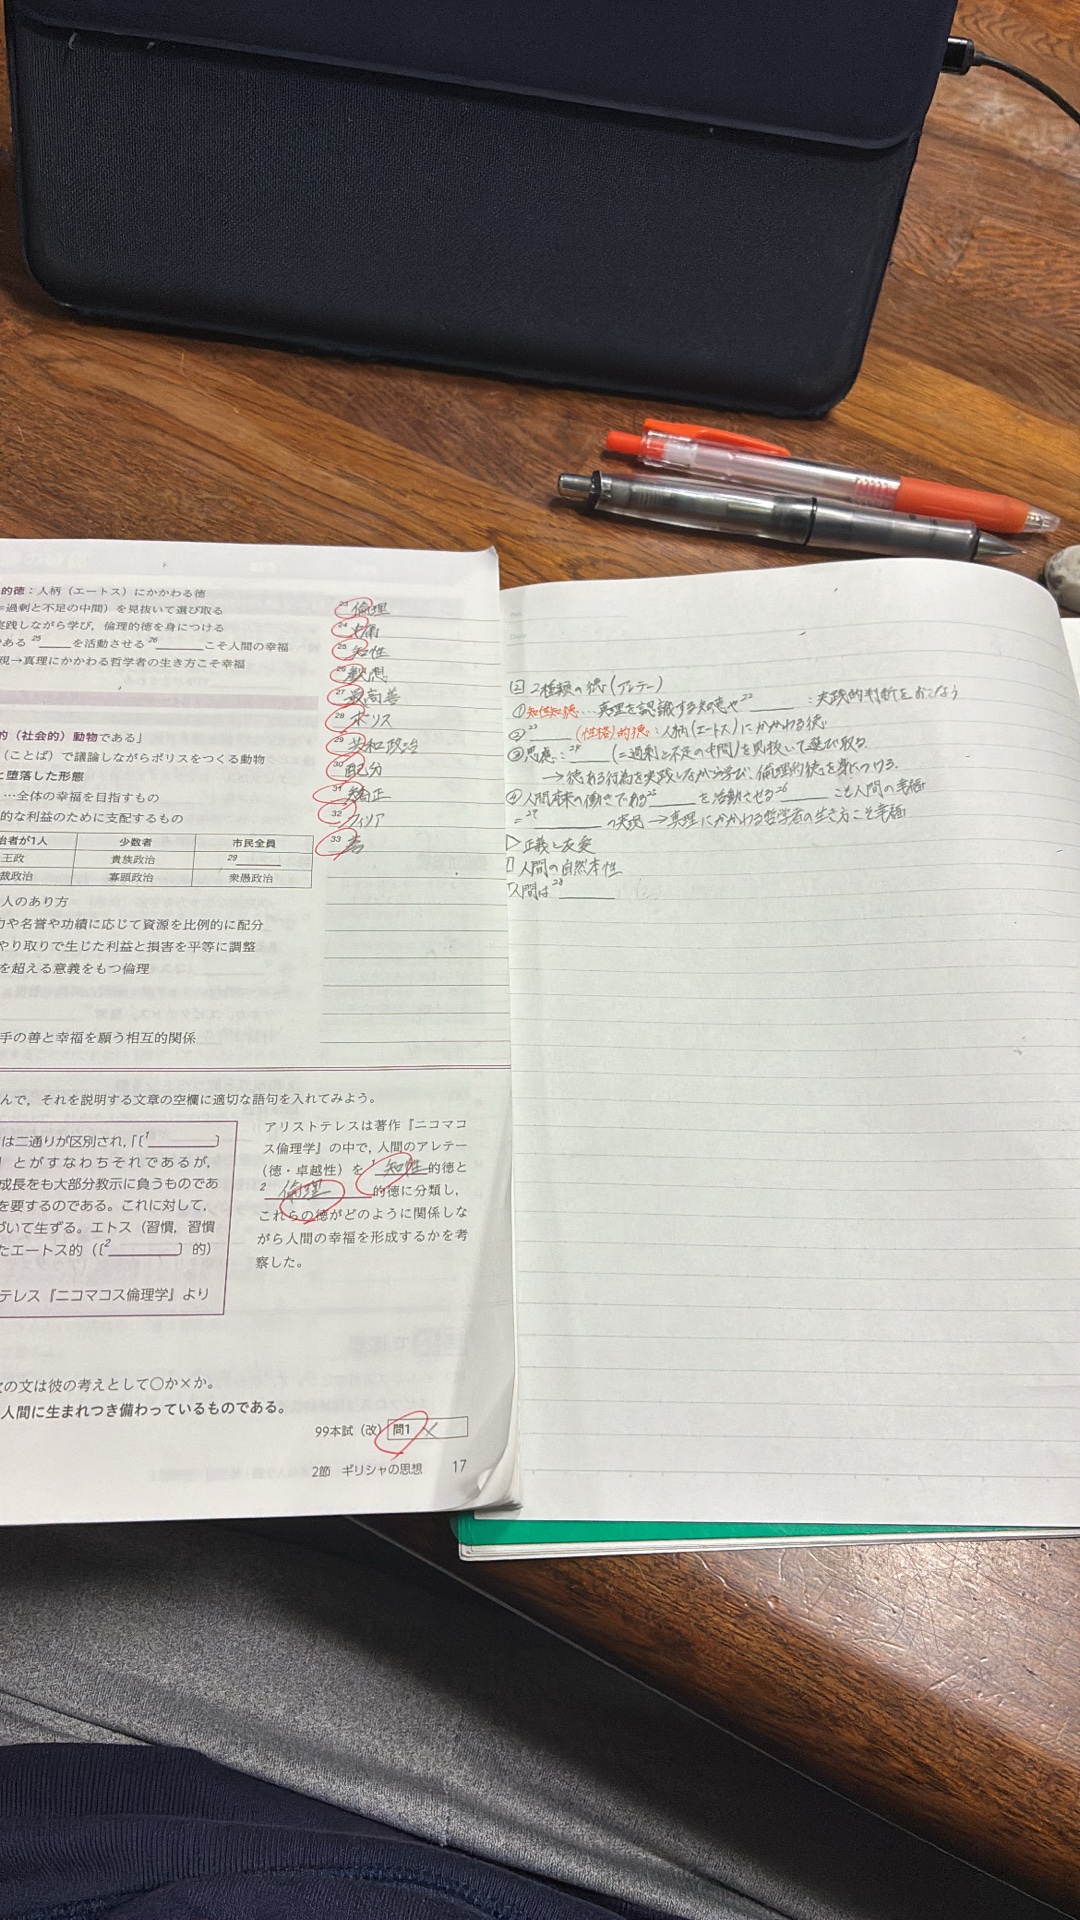 的徳：人柄（エートス）にかかわる徳
＝過剰と不足の中間）を見抜いて選び取る
実践しながら学び，倫理的徳を身につける
である 25____を活動させる 26____こそ人間の幸福
現→真理にかかわる哲学者の生き方こそ幸福
的（社会的）動物である」
（ことば）で議論しながらポリスをつくる動物
と堕落した形態
…全体の幸福を目指すもの
的な利益のために支配するもの
治者が1人 少数者 市民全員
王政 貴族政治 29____
裁政治 寡頭政治 衆愚政治
人のあり方
力や名誉や功績に応じて資源を比例的に配分
やり取りで生じた利益と損害を平等に調整
を超える意義をもつ倫理
手の善と幸福を願う相互的関係
23 倫理
24 中庸
25 知性
26 観想
27 最高善
28 ポリス
29 共和政治
30 配分
31 矯正
32 フィリア
33 善
んで，それを説明する文章の空欄に適切な語句を入れてみよう。
は二通りが区別され，「〔1____〕
〕とがすなわちそれであるが，
成長をも大部分教示に負うものであ
を要するのである。これに対して，
づいて生ずる。エトス（習慣，習慣
たエートス的（〔2____〕的）
テレス『ニコマコス倫理学』より
アリストテレスは著作『ニコマコ
ス倫理学』の中で，人間のアレテー
（徳・卓越性）を 1 知性的徳と
2 倫理 的徳に分類し，
これらの徳がどのように関係しな
がら人間の幸福を形成するかを考
察した。
次の文は彼の考えとして○か×か。
人間に生まれつき備わっているものである。
99本試（改） 問1 ×
2節 ギリシャの思想 17
② 2種類の徳(アレテー)
①知性的徳…真理を認識する知恵や22____：実践的判断をおこなう
②23____(性格)的徳：人柄(エートス)にかかわる徳
③思慮：24____(＝過剰と不足の中間)を見抜いて選び取る
→徳ある行為を実践しながら学び、倫理的徳を身につける.
④人間本来の働きである25____を活動させる26____こそ人間の幸福
＝27____の実現→真理にかかわる哲学者の生き方こそ幸福
▷正義と友愛
1 人間の自然本性
「人間は28____